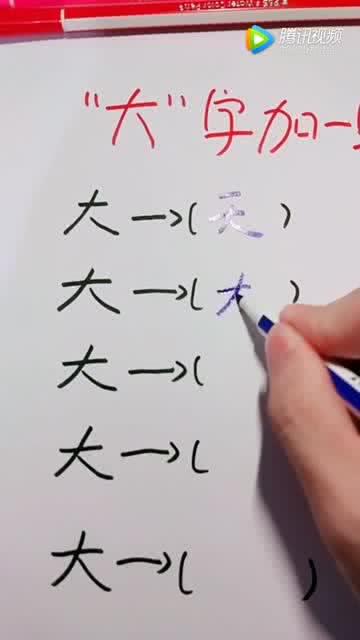 腾讯视频
"大"字加一
大→(天)
大→(大)
大→(
大→(
大→( )